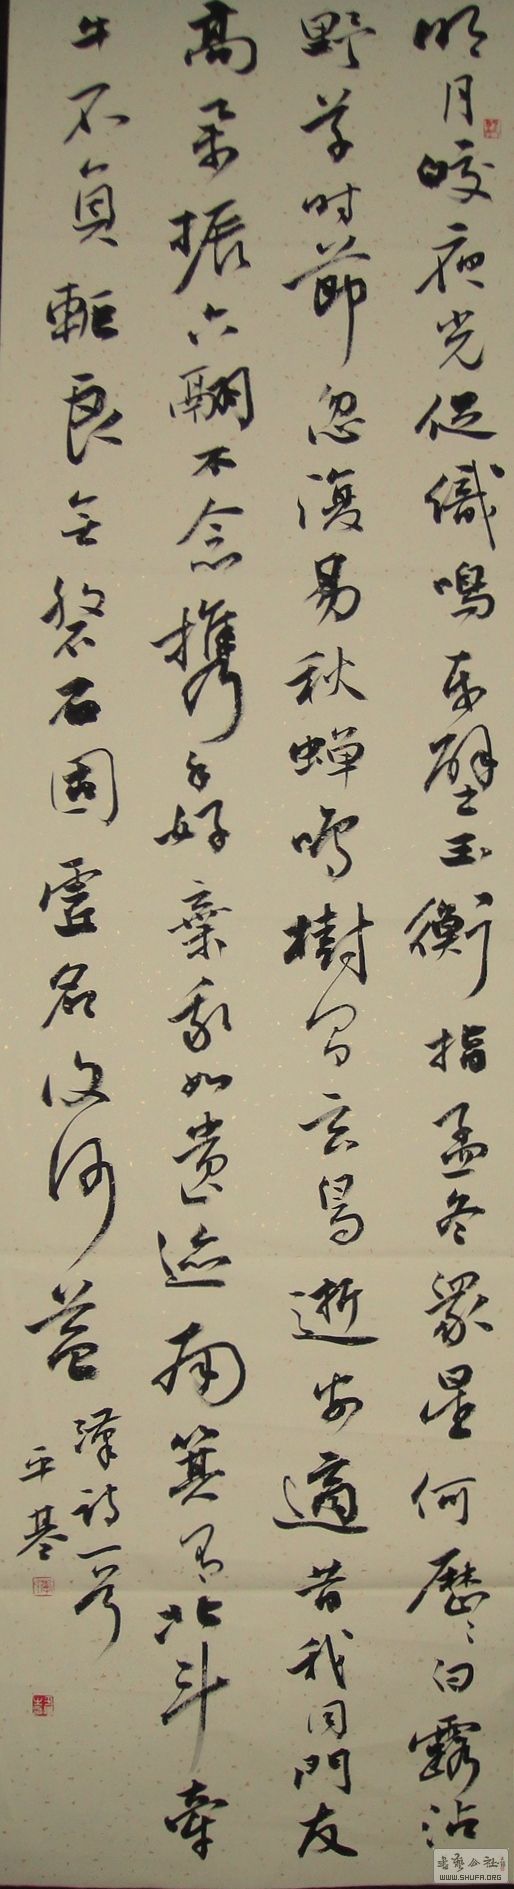 明月皎夜光促織鳴東壁玉衡指孟冬眾星何歷〻白露沾
野草时節忽復易秋蝉鳴樹間玄鳥逝安適昔我同門友
高舉振六翮不念携手好棄我如遺迹南箕有北斗牽
牛不負軛良無磐石固虛名復何益
漢詩一首
平基
書藝公社
WWW.SHUFA.ORG